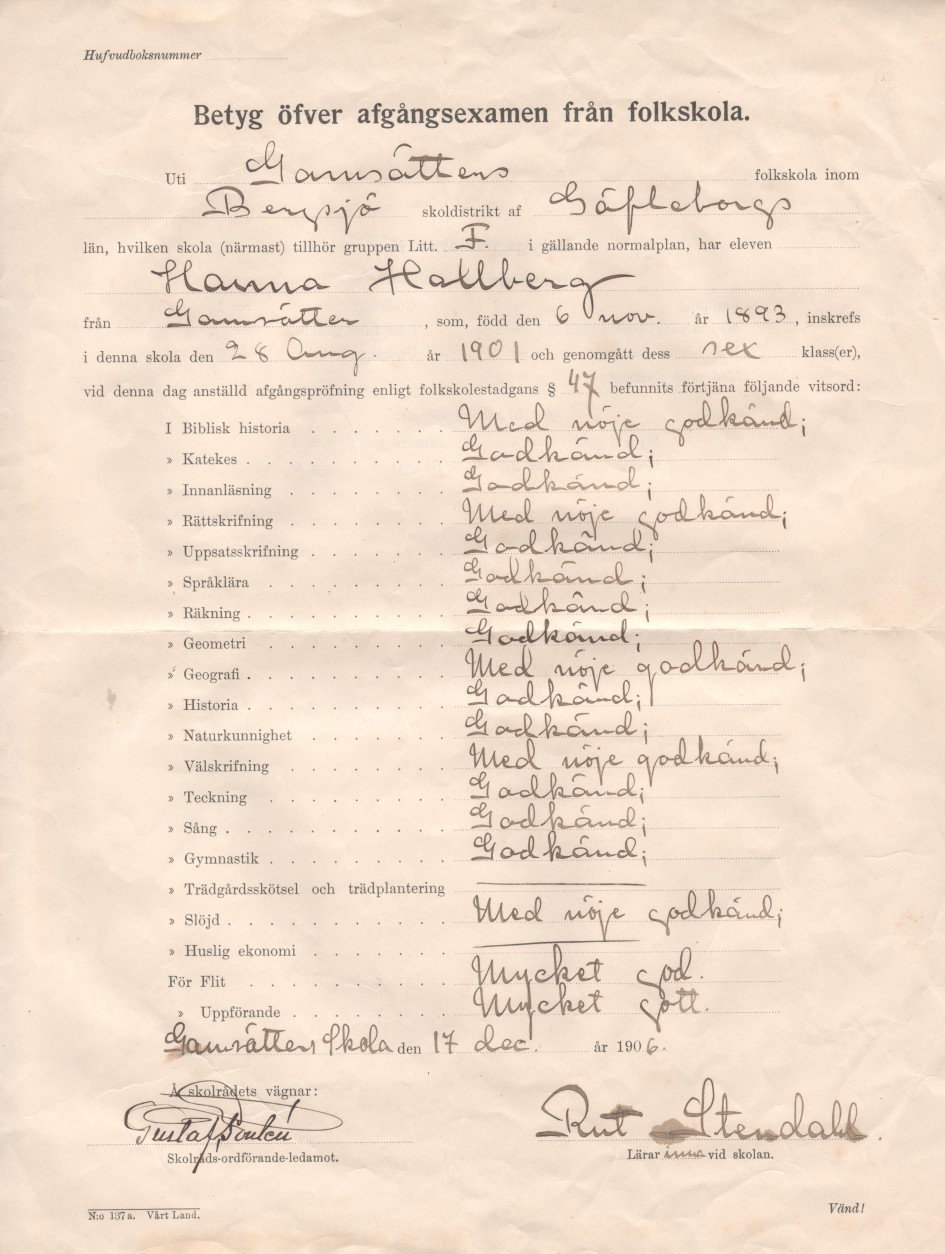 Hufvudboksnummer
Betyg öfver afgångsexamen från folkskola.
Uti Gamsättens folkskola inom
Bergsjö skoldistrikt af Gäfleborgs
län, hvilken skola (närmast) tillhör gruppen Litt. F. i gällande normalplan, har eleven
Hanna Hallberg
från Gamsätter, som, född den 6 nov. år 1893, inskrefs
i denna skola den 28 Aug. år 1901 och genomgått dess sex klass(er),
vid denna dag anställd afgångspröfning enligt folkskolestadgans § 47 befunnits förtjäna följande vitsord:
I Biblisk historia . . . . . . Med nöje godkänd;
» Katekes . . . . . . . . . Godkänd;
» Innanläsning . . . . . . . Godkänd;
» Rättskrifning . . . . . . . Med nöje godkänd;
» Uppsatsskrifning . . . . . . Godkänd;
» Språklära . . . . . . . . Godkänd;
» Räkning . . . . . . . . . Godkänd;
» Geometri . . . . . . . . Godkänd;
» Geografi . . . . . . . . . Med nöje godkänd;
» Historia . . . . . . . . . Godkänd;
» Naturkunnighet . . . . . . Godkänd;
» Välskrifning . . . . . . . Med nöje godkänd;
» Teckning . . . . . . . . Godkänd;
» Sång . . . . . . . . . . Godkänd;
» Gymnastik . . . . . . . . Godkänd;
» Trädgårdsskötsel och trädplantering
» Slöjd . . . . . . . . . . Med nöje godkänd;
» Huslig ekonomi . . . . . .
För Flit . . . . . . . . . Mycket god.
» Uppförande . . . . . . . Mycket gott.
Gamsätters Skola den 17 dec. år 1906.
Å skolrådets vägnar:
Gustaf Rut Stendahl.
Skolråds-ordförande-ledamot. Lärarinna vid skolan.
N:o 137 a. Vårt Land. Vänd!